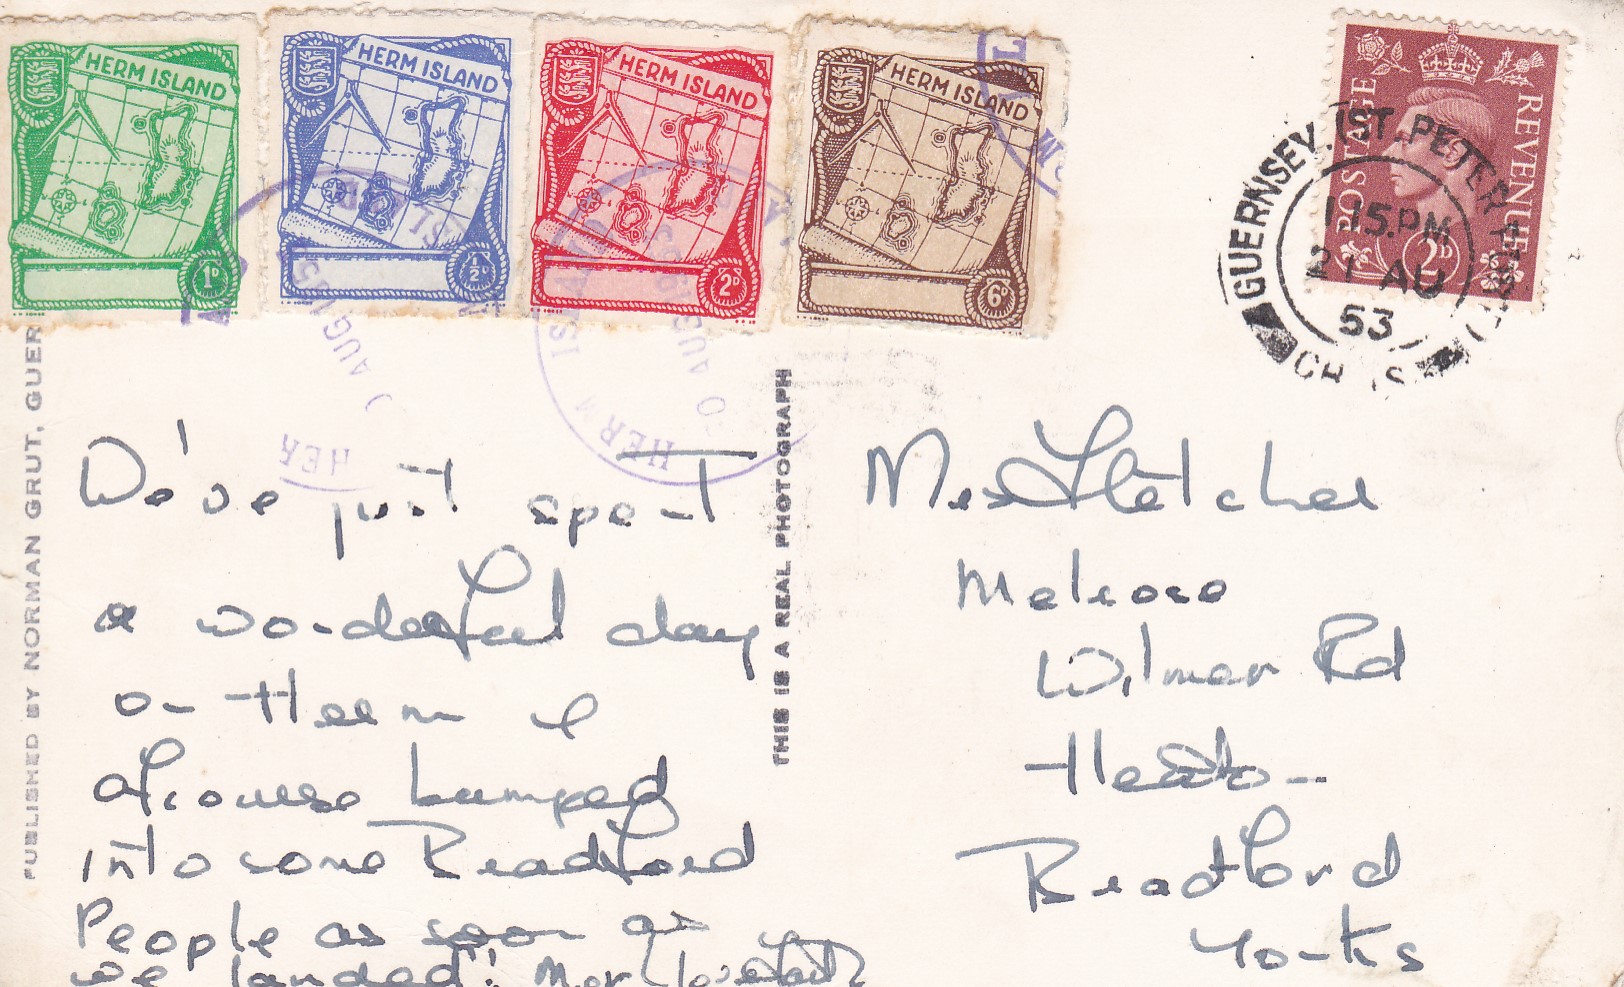 HERM ISLAND
1D
HERM ISLAND
½D
HERM ISLAND
2D
HERM ISLAND
6D
POSTAGE REVENUE
2D
GUERNSEY, (ST. PETER PORT)
1.15.PM
21 AU
53
HERM ISLAND
AUG
We've just spent
a wonderful day
on Herm &
of course bumped
into some Bradford
People as soon as
we landed!
PUBLISHED BY NORMAN GRUT, GUER
THIS IS A REAL PHOTOGRAPH
Fletcher
Melrose
Wilmer Rd
Heaton
Bradford
Yorks